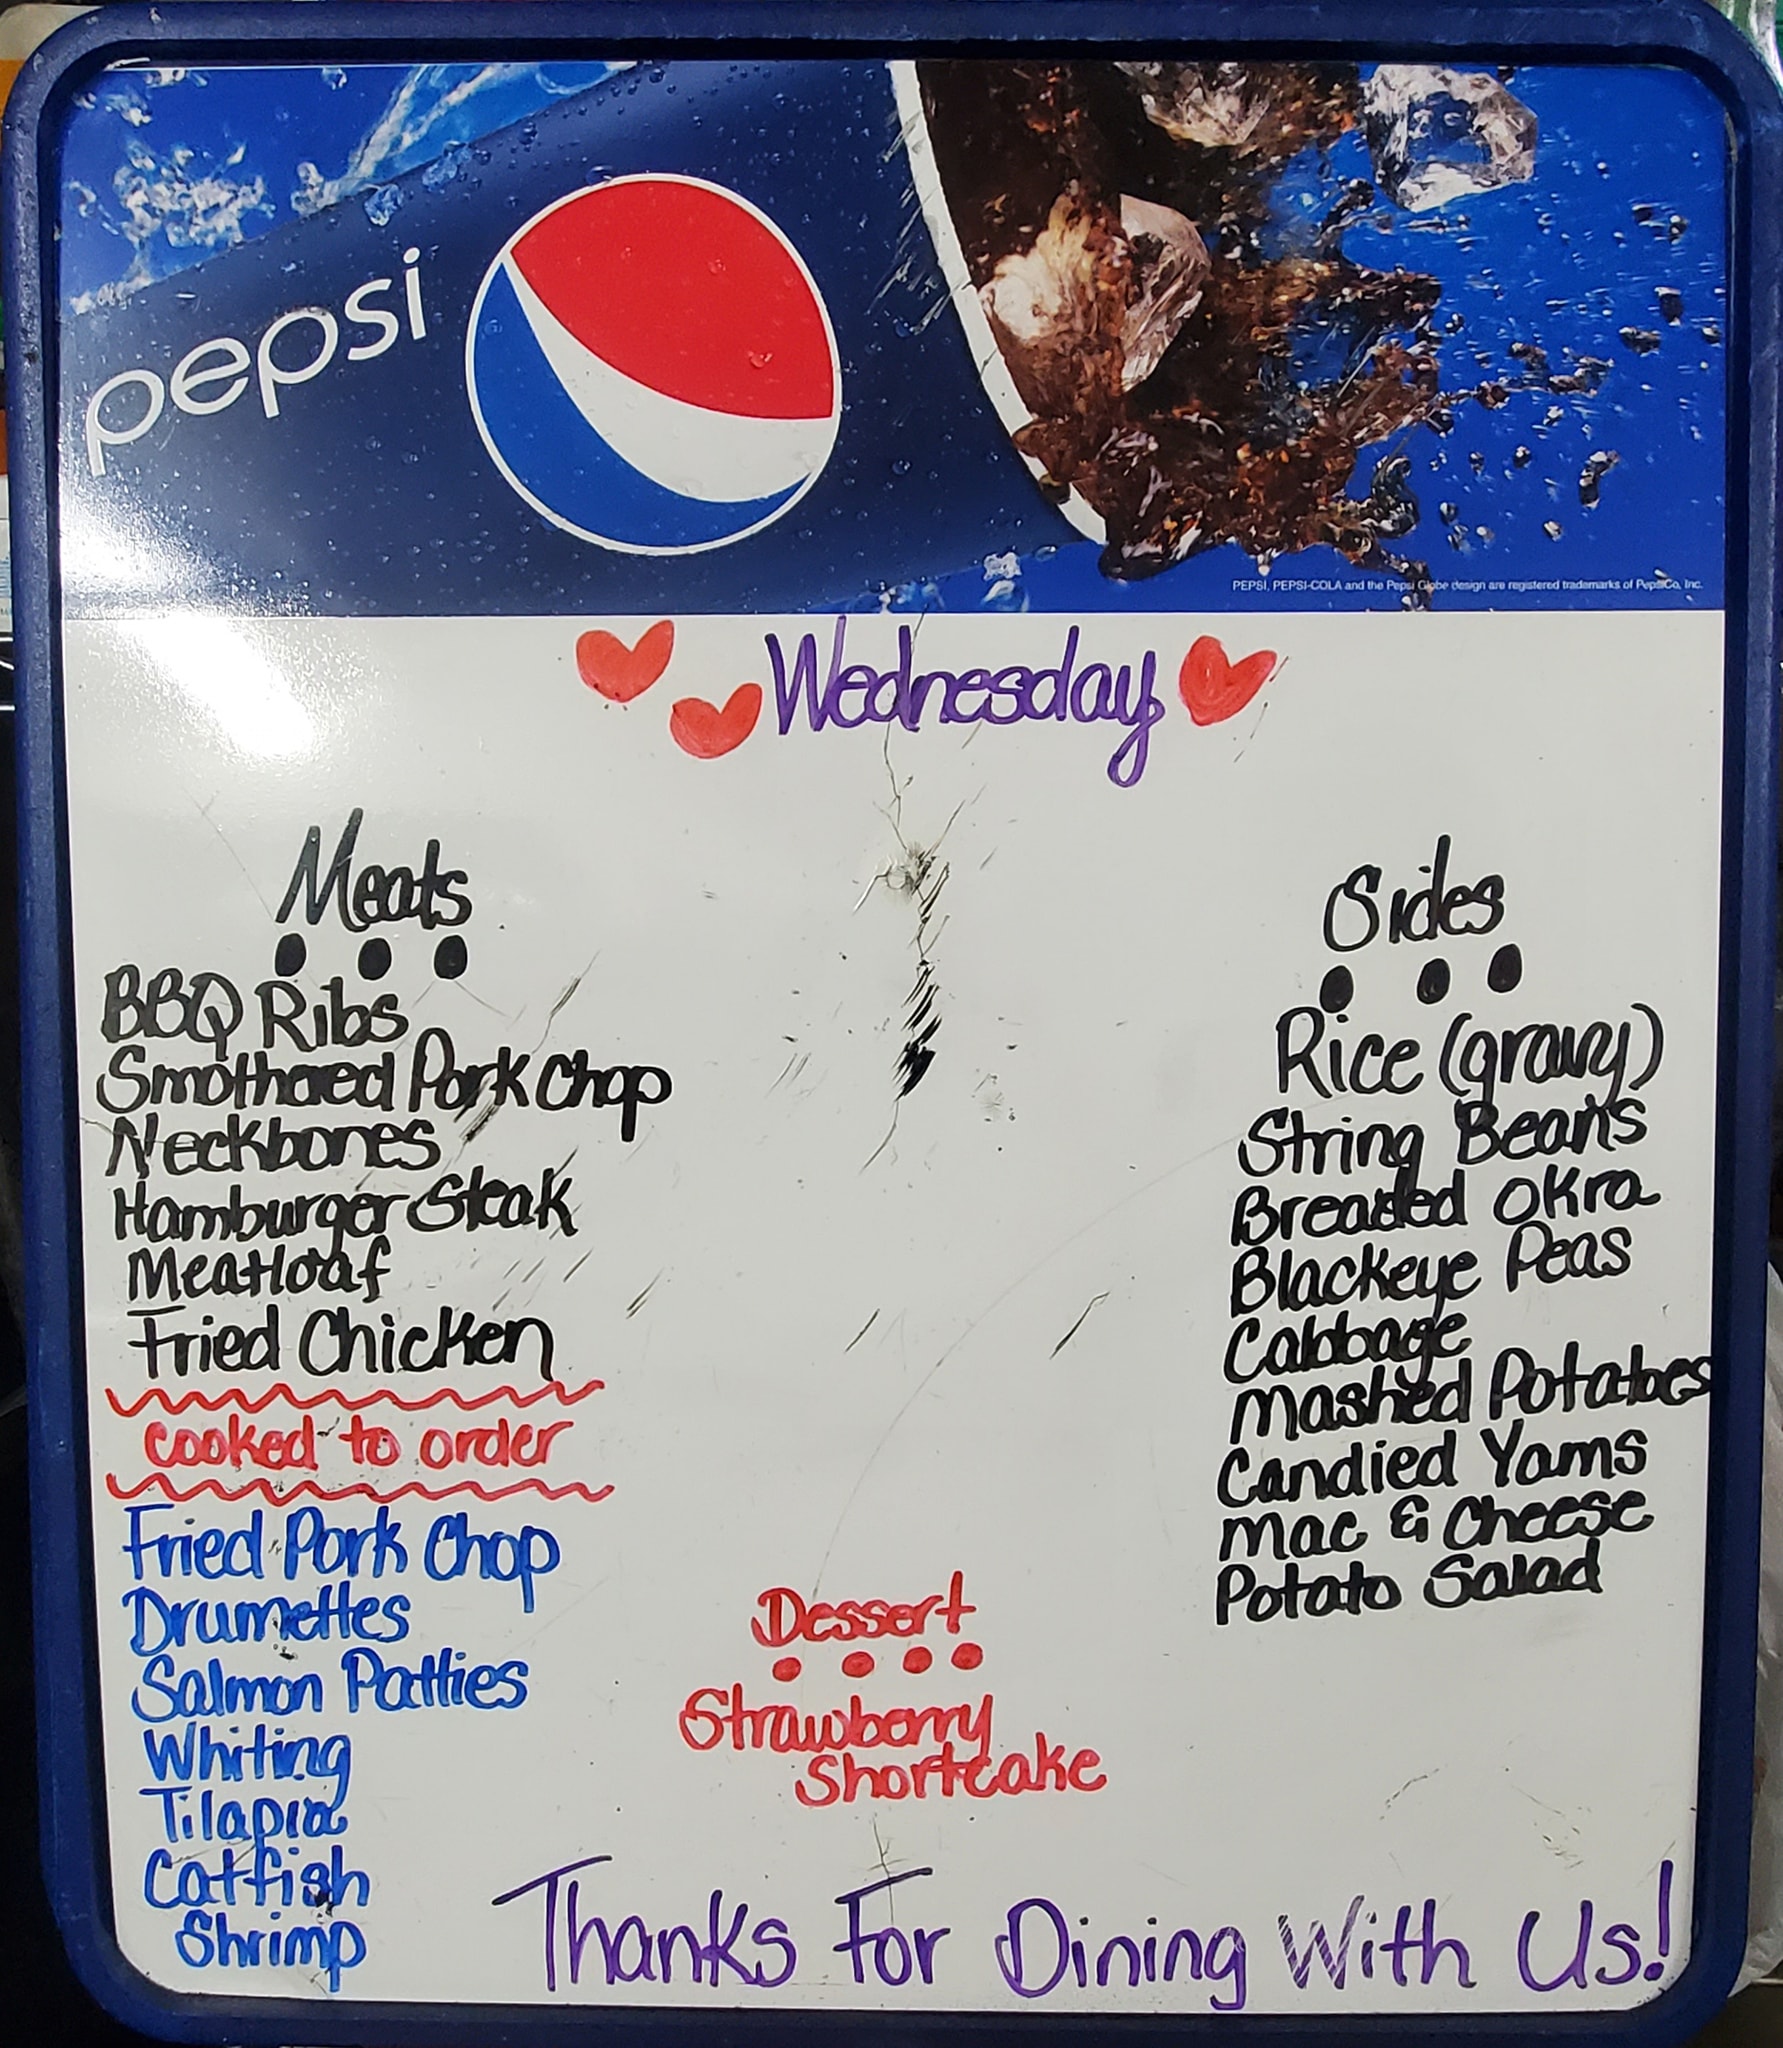 pepsi
PEPSI, PEPSI-COLA and the Pepsi Globe design are registered trademarks of PepsiCo, Inc.
Wednesday
Meats
BBQ Ribs
Smothered Pork Chop
Neckbones
Hamburger Steak
Meatloaf
Fried Chicken
cooked to order
Fried Pork Chop
Drumettes
Salmon Patties
Whiting
Tilapia
Catfish
Shrimp
Sides
Rice (gravy)
String Beans
Breaded Okra
Blackeye Peas
Cabbage
Mashed Potatoes
Candied Yams
Mac & Cheese
Potato Salad
Dessert
Strawberry
Shortcake
Thanks For Dining With Us!